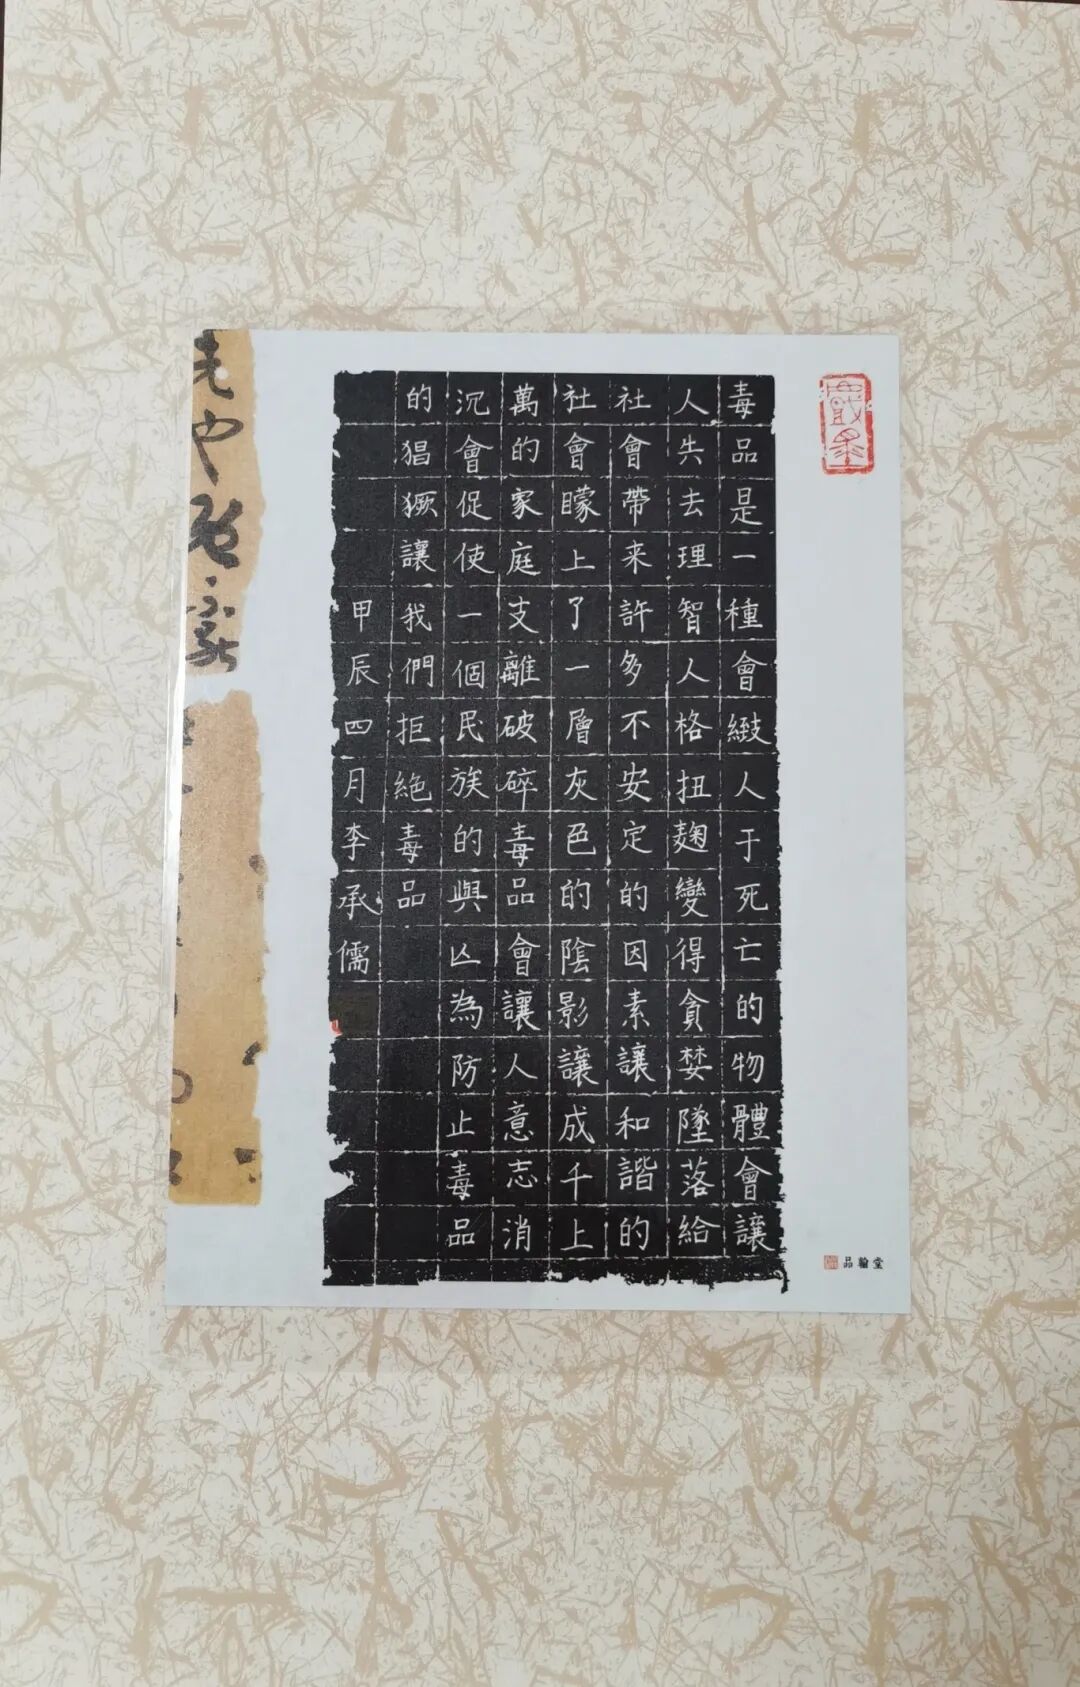 毒品是一種會緻人于死亡的物體會讓
人失去理智人格扭麹變得貪婪墜落給
社會帶来許多不安定的因素讓和諧的
社會矇上了一層灰色的陰影讓成千上
萬的家庭支離破碎毒品會讓人意志消
沉會促使一個民族的興亾為防止毒品
的猖獗讓我們拒絶毒品
甲辰四月李承儒
品翰堂